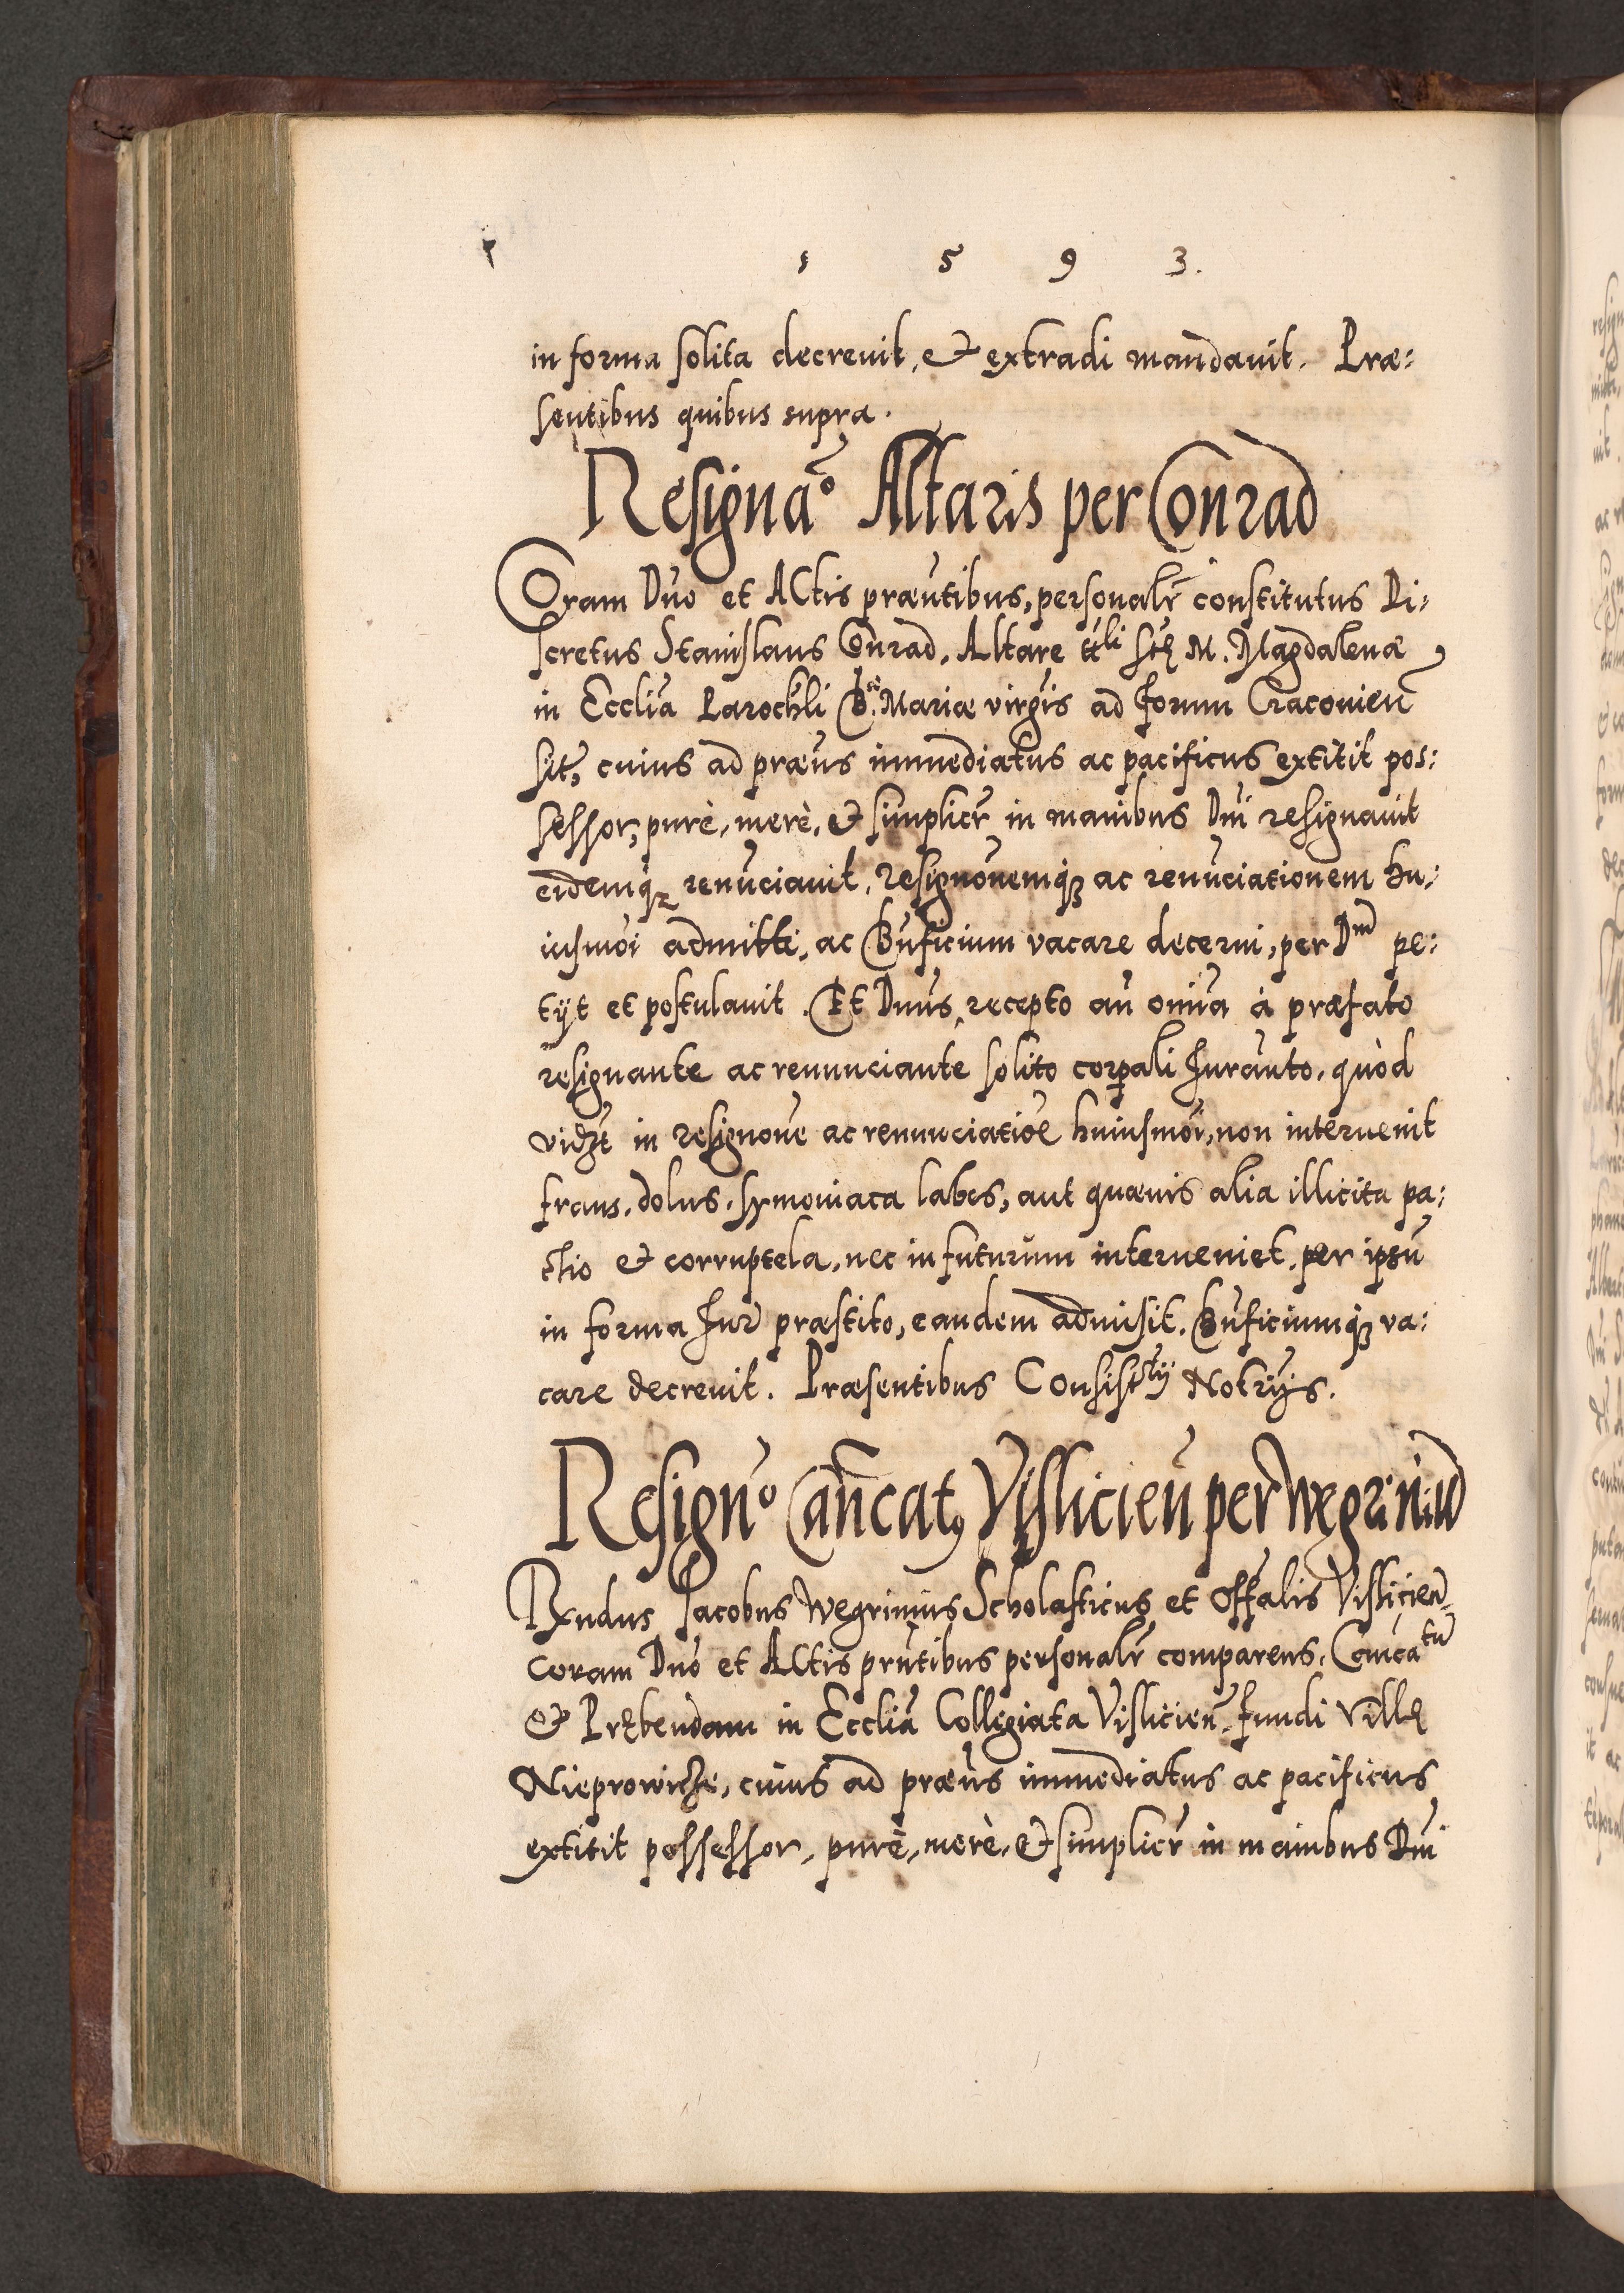 1 5 9 3.
in forma solita decreuit, et extradi mandauit. Præ:
sentibus quibus supra.
Resignão Altaris per Conrad
Coram Dno et Actis præntibus, personalr constitutus Di:
scretus Stanislaus Conrad, Altare ttli Sctę M. Magdalenæ
in Ecclia Parochli B. Mariæ virgis ad forum Cracouien
sit, cuius ad præns immediatus ac pacificus extitit pos:
sessor, purè, merè, et simplicr in manibus Dni resignauit
eidemq renũciauit, resignonemq ac renũciationem hu:
iusmoi admitti, ac Bnficium vacare decerni, per Dnm pe:
tijt et postulauit. Et Dnus, recepto an omia à præfato
resignante ac renunciante solito corpali Iuranto, quòd
vidzt in resignone ac renunciatioe huiusmoi, non interuenit
fraus, dolus, symoniaca labes, aut quæuis alia illicita pa:
ctio et corruptela, nec in futurum interueniet, per ipsũ
in forma Iur præstito, eandem admisit, Bnficiumq va:
care decreuit. Præsentibus Consistrij Notrijs.
Resigno Cancatq Vislicien per Wegriniũ
Rxndus Jacobus Wegrinius Scholasticus et Offalis Vislicien,
coram Dno et Actis prntibus personalr comparens, Canca tũ
et Prębendam in Ecclia Collegiata Vislicien, fundi villę
Nieprowicze, cuius ad præns immediatus ac pacificus
extitit possessor, purè, merè, et simplicr in manibus Dni